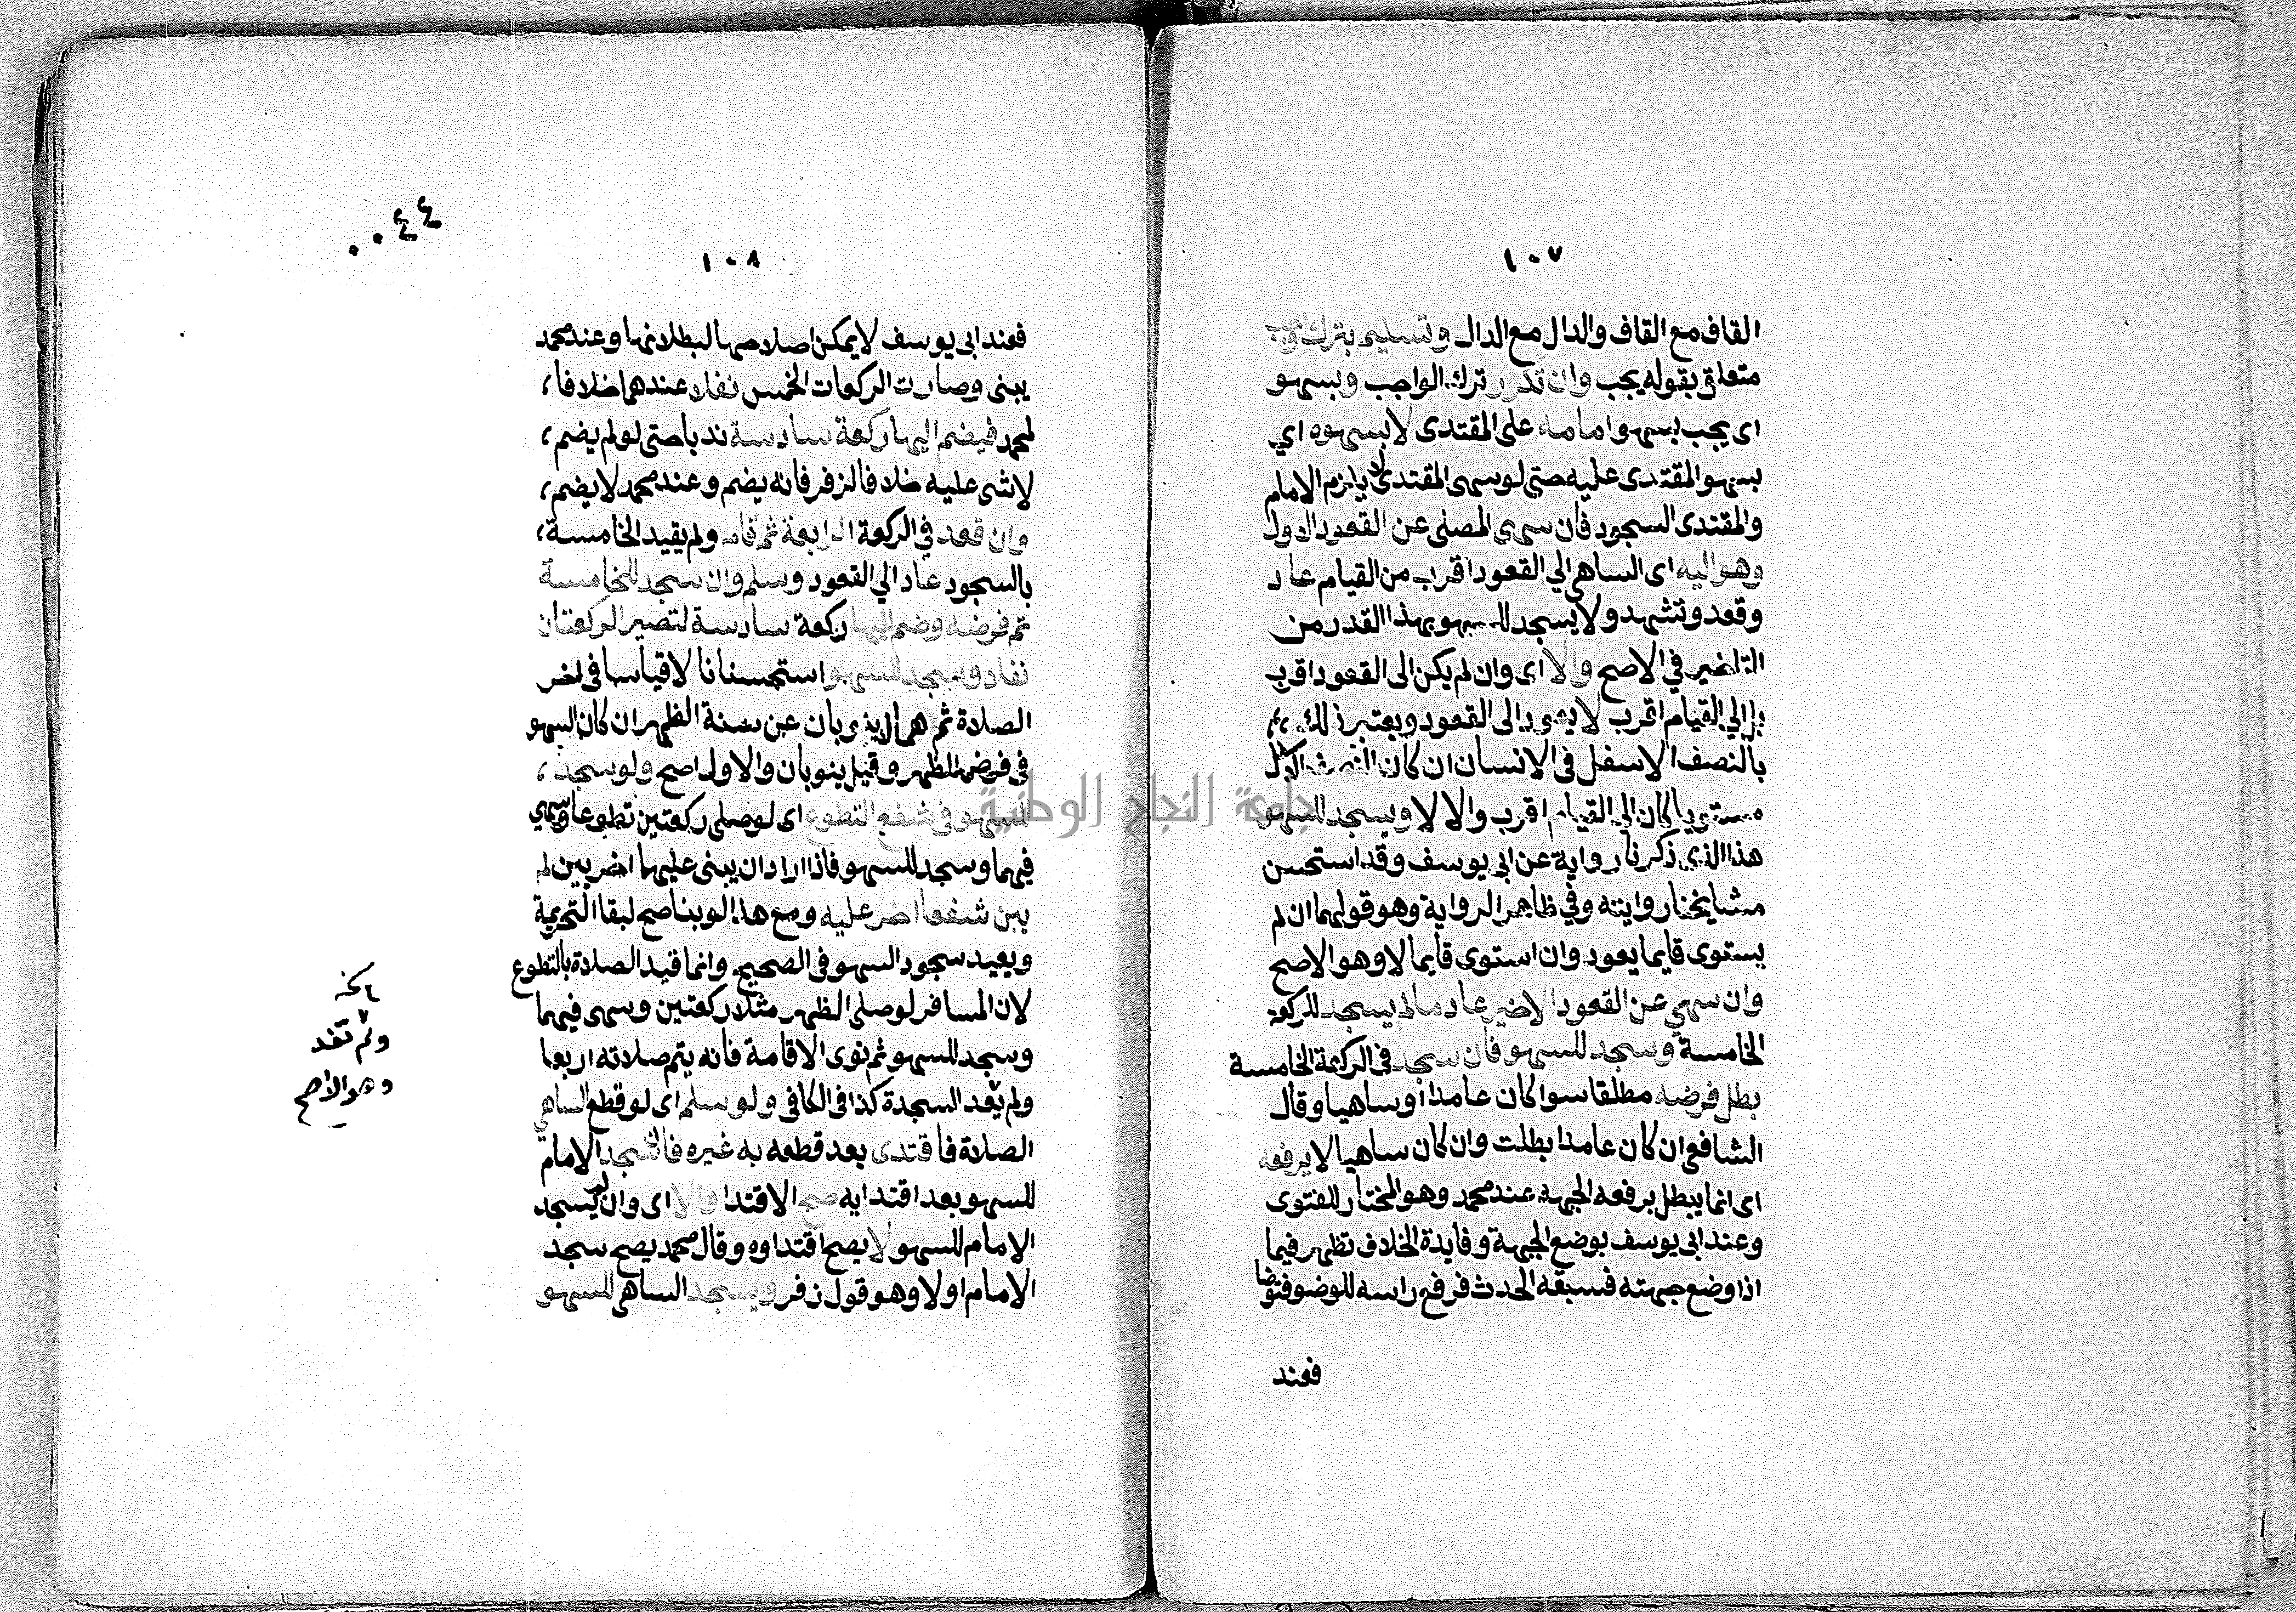 ١٠٧
القاف مع القاف والدال مع الدال وتسليم بترك واجب
متعلق بقوله يجب وان تكرر ترك الواجب وبسهو
اى يجب بسهو امامه على المقتدى لا بسهوه اي
بسهو المقتدى عليه حتى لو سهى المقتدى لا يلزم الامام
والمقتدى السجود فان سهى المصلى عن القعود الاول
وهو اليه اى الساهى الي القعود اقرب من القيام عاد
وقعد وتشهد ولا يسجد للسهو بهذا القدر من
التاخير في الاصح والا اى وان لم يكن الى القعود اقرب
بل الي القيام اقرب لا يعود الى القعود ويعتبر ذلك
بالنصف الاسفل في الانسان ان كان النصف الاسفل
مستويا كان الى القيام اقرب والا لا ويسجد للسهو
هذا الذي ذكرنا رواية عن ابى يوسف وقد استحسن
مشايخنا روايته وفي ظاهر الرواية وهو قولهما ان لم
يستوى قايما يعود وان استوى قايما لا وهو الاصح
وان سهي عن القعود الاخير عاد ما لم يسجد للركعة
الخامسة وسجد للسهو فان سجد فى الركعة الخامسة
بطل فرضه مطلقا سوا كان عامدا أو ساهيا وقال
الشافعى ان كان عامدا بطلت وان كان ساهيا لا يرفعه
اى انما يبطل برفعه الجبهة عند محمد وهو المختار للفتوى
وعند ابى يوسف بوضع الجبهة وفايدة الخلاف تظهر فيما
اذا وضع جبهته فسبقه الحدث فرفع راسه للوضو فتوضا
فعند
٠٠٤٤
١٠٨
فعند ابى يوسف لا يمكن اصلاحها لبطلانها وعند محمد
يبنى وصارت الركعات الخمس نفلا عندهما خلافا
لمحمد فيضم اليها ركعة سادسة ندبا حتى لو لم يضم
لا شى عليه خلافا لزفر فانه يضم وعند محمد لا يضم
وان قعد في الركعة الرابعة ثم قام ولم يقيد الخامسة
بالسجود عاد الي القعود وسلم وان سجد للخامسة
تم فرضه وضم اليها ركعة سادسة لتصير الركعتان
نفلا وسجد للسهو استحسنانا لا قياسا فى اخر
الصلاة ثم هما لا ينوبان عن سنة الظهر ان كان السهو
فى فرض الظهر وقيل ينوبان والاول اصح ولو سجد
للسهو في شفع التطوع اى لو صلى ركعتين تطوعا وسهي
فيهما وسجد للسهو فاذا اراد ان يبنى عليهما اخريين لم
يبن شفعا اخر عليه ومع هذا لو بنا صح لبقا التحريمة
ويعيد سجود السهو فى الصحيح وانما قيد الصلاة بالتطوع
لان المسافر لو صلى الظهر مثلا ركعتين وسهى فيهما
وسجد للسهو ثم نوى الاقامة فانه يتم صلاته اربعا
ولم يعد السجدة كذا فى الكافى ولو سلم اى لو قطع الساهي
الصلاة فاقتدى بعد قطعه به غيره فان سجد الامام
للسهو بعد اقتدايه صح الاقتدا والا اى وان لم يسجد
الامام للسهو لا يصح اقتداوه وقال محمد يصح سجد
الامام اولا وهو قول زفر ويسجد الساهى للسهو
ولم تعد
وهو الأصح
جامعة النجاح الوطنية